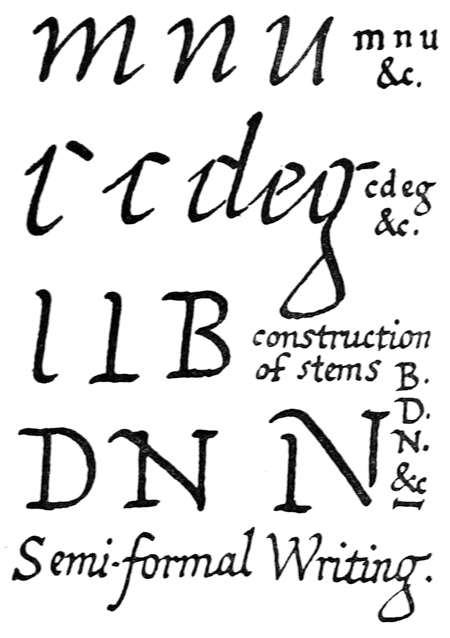 m n u m n u
&c.
ı ˊ c deg cdeg
&c.
l l B construction
of stems B.
D.
D N N N.
&c
Semi-formal Writing.